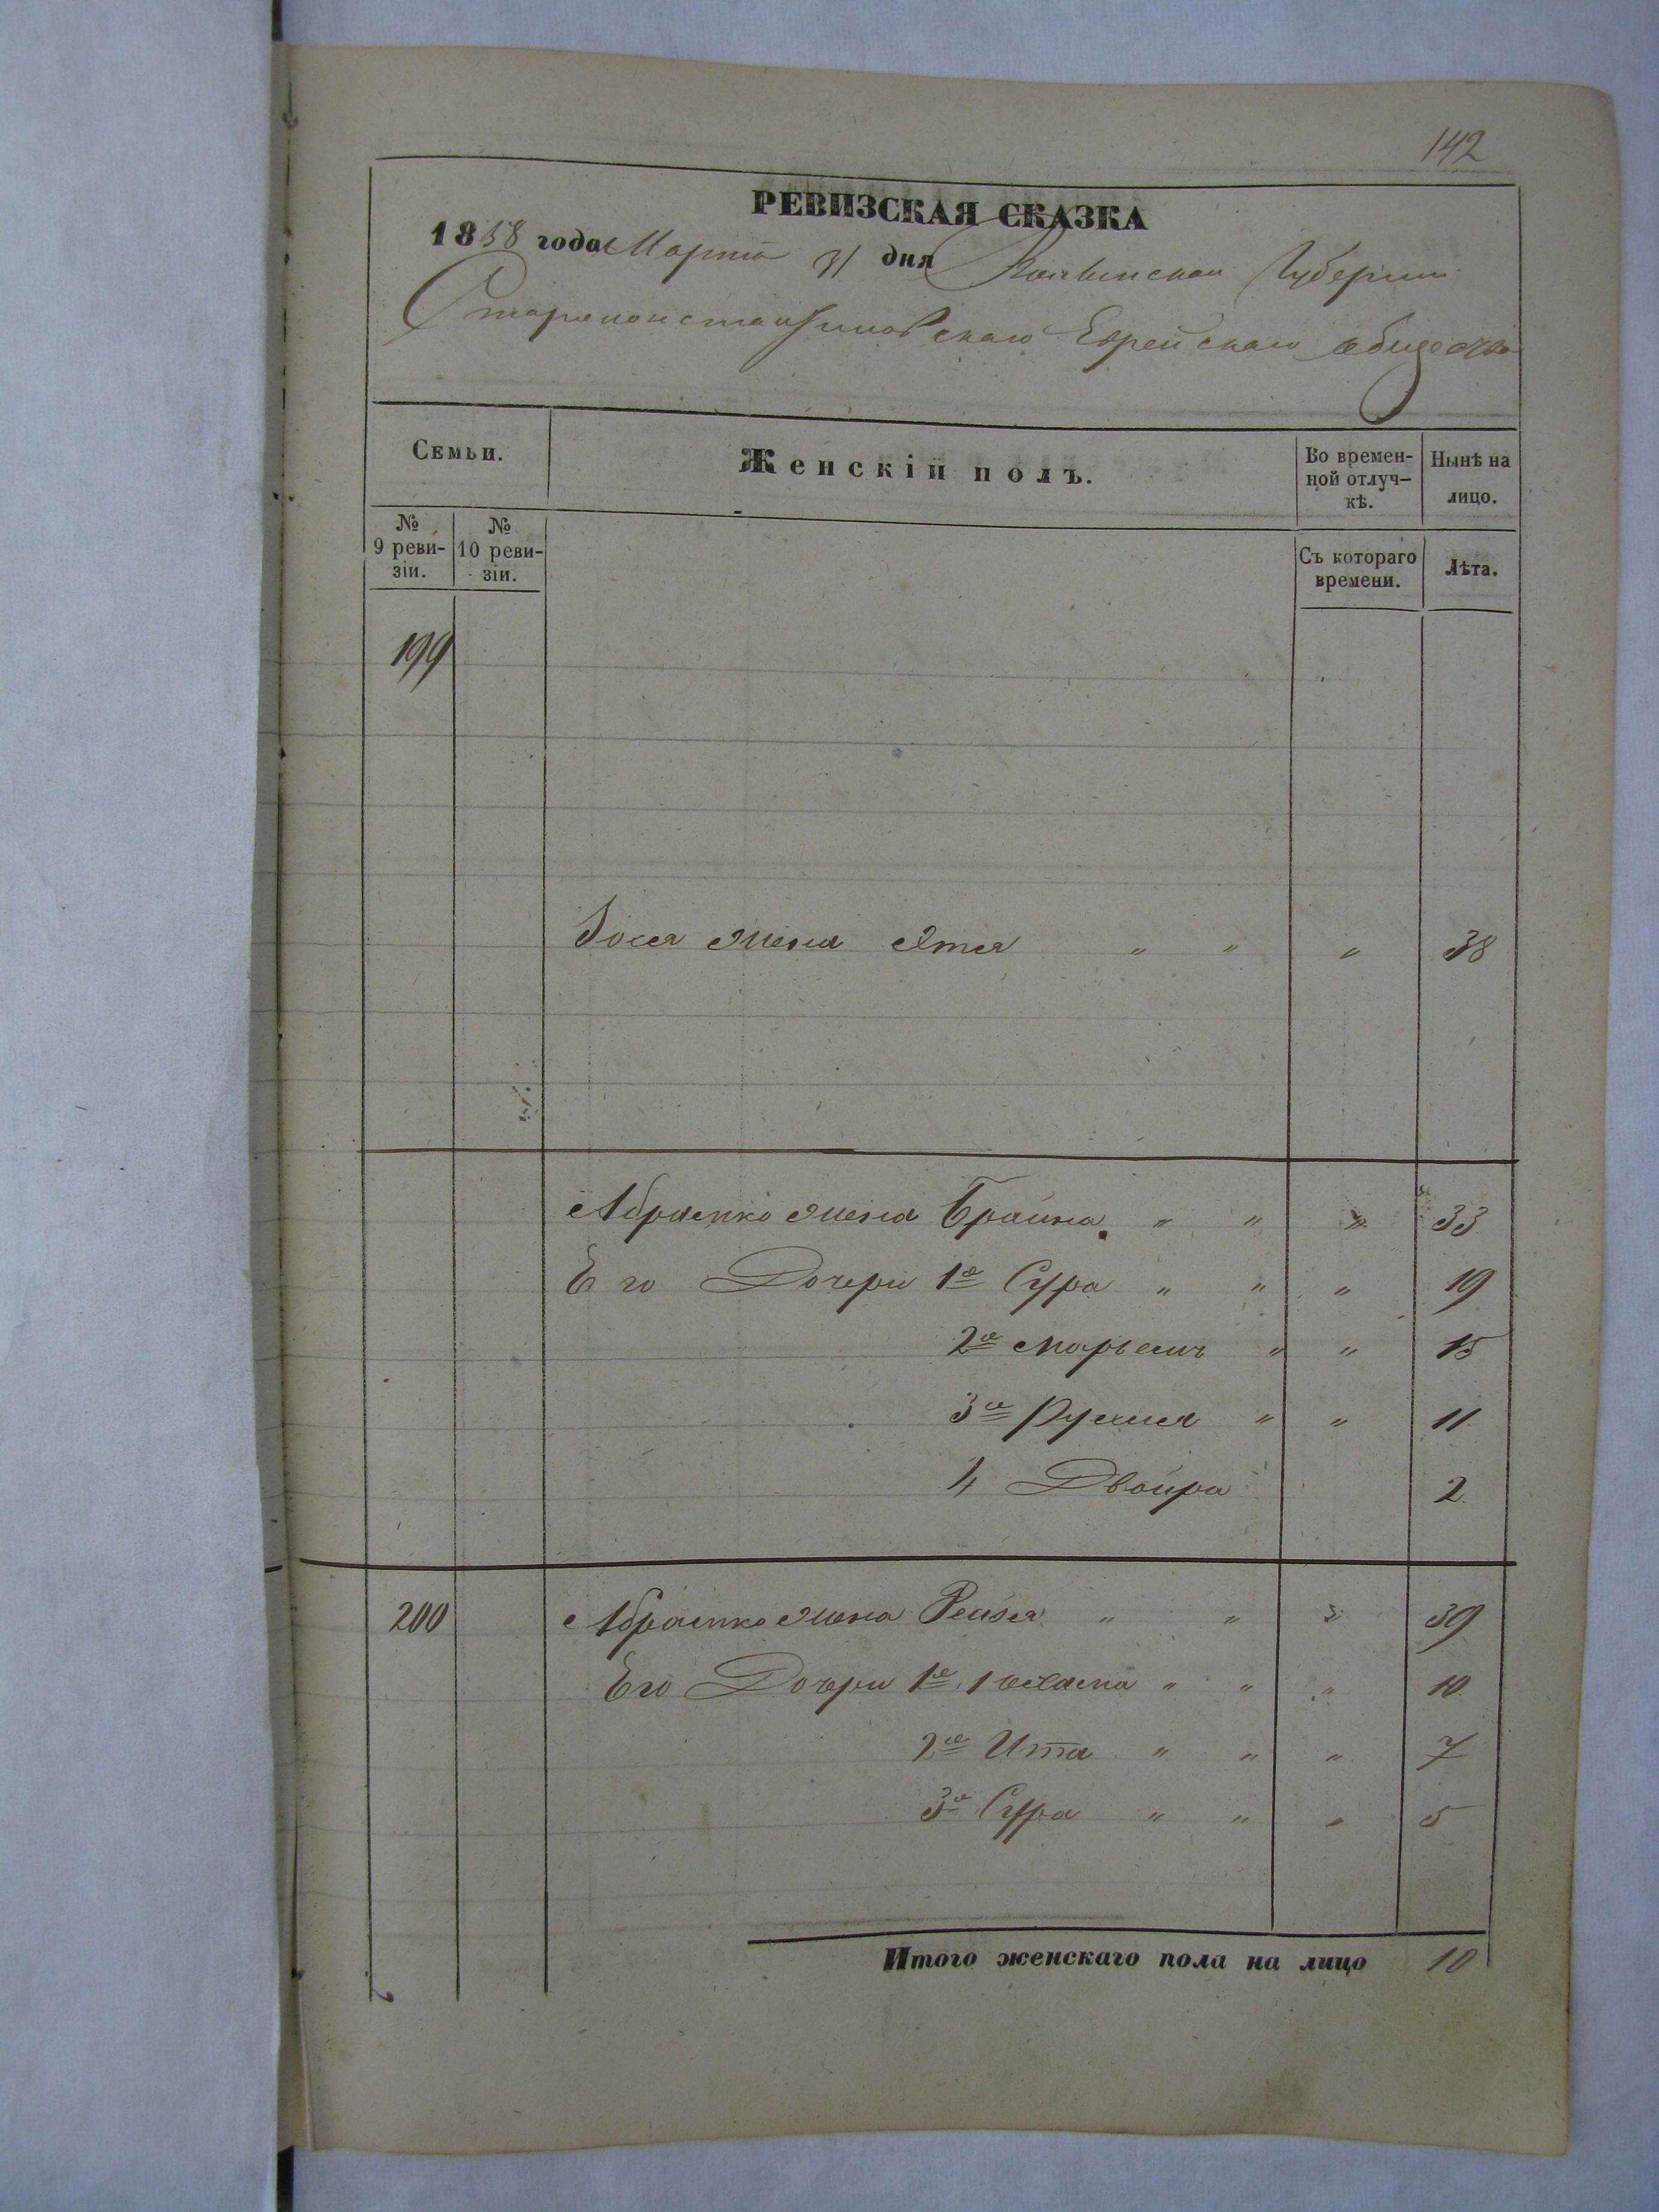 142
РЕВИЗСКАЯ СКАЗКА
1858 года Марта 31 дня Волынской Губернии
Староконстантиновскаго Еврейскаго общества
Семьи.
Женскій полъ.
Во временной отлучкѣ.
Нынѣ на лицо.
№ 9 ревизіи.
№ 10 ревизіи.
Съ котораго времени.
Лѣта.
199
Іося жена Этя " " " 38
Абрамко жена Брайна " " " 33
Его Дочери 1я Сура " " " 19
2я Марьемъ " " 15
3я Рухля " " 11
4 Двойра 2
200 Абрамко жена Рейзя " " " 39
Его Дочери 1я " " " 10
2я Ита " " " 7
3я Сура " " " 5
Итого женскаго пола на лицо 10